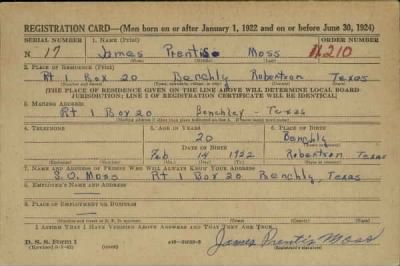 REGISTRATION CARD—(Men born on or after January 1, 1922 and on or before June 30, 1924)
SERIAL NUMBER 1. NAME (Print) ORDER NUMBER
N 17 James Prentise Moss 11210
(First) (Middle) (Last)
2. PLACE OF RESIDENCE (Print)
Rt 1 Box 20 Benchly Robertson Texas
(Number and street) (Town, township, village, or city) (County) (State)
[THE PLACE OF RESIDENCE GIVEN ON THE LINE ABOVE WILL DETERMINE LOCAL BOARD
JURISDICTION; LINE 2 OF REGISTRATION CERTIFICATE WILL BE IDENTICAL]
3. MAILING ADDRESS
Rt 1 Box 20 Benchley - Texas
[Mailing address if other than place indicated on line 2. If same insert word same]
4. TELEPHONE 5. AGE IN YEARS 6. PLACE OF BIRTH
20 Benchly
DATE OF BIRTH (Town or county)
Feb 14 1922 Robertson Texas
(Exchange) (Number) (Mo.) (Day) (Yr.) (State or country)
7. NAME AND ADDRESS OF PERSON WHO WILL ALWAYS KNOW YOUR ADDRESS
S. O. Moss Rt 1 Box 20 Benchly, Texas
8. EMPLOYER'S NAME AND ADDRESS
9. PLACE OF EMPLOYMENT OR BUSINESS
(Number and street or R. F. D. number) (Town) (County) (State)
I AFFIRM THAT I HAVE VERIFIED ABOVE ANSWERS AND THAT THEY ARE TRUE.
D. S. S. Form 1 James Prentis Moss
(Registrant's signature)